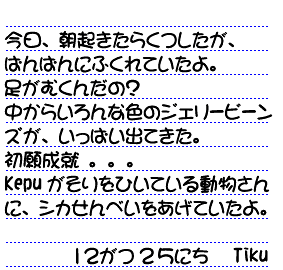 今日、朝起きたらくつしたが、
ぱんぱんにふくれていたよ。
足がむくんだの？
中からいろんな色のジェリービーン
ズが、いっぱい出てきた。
初願成就 。。。
Kepu がそりをひいている動物さん
に、シカせんべいをあげていたよ。
12がつ 25にち Tiku